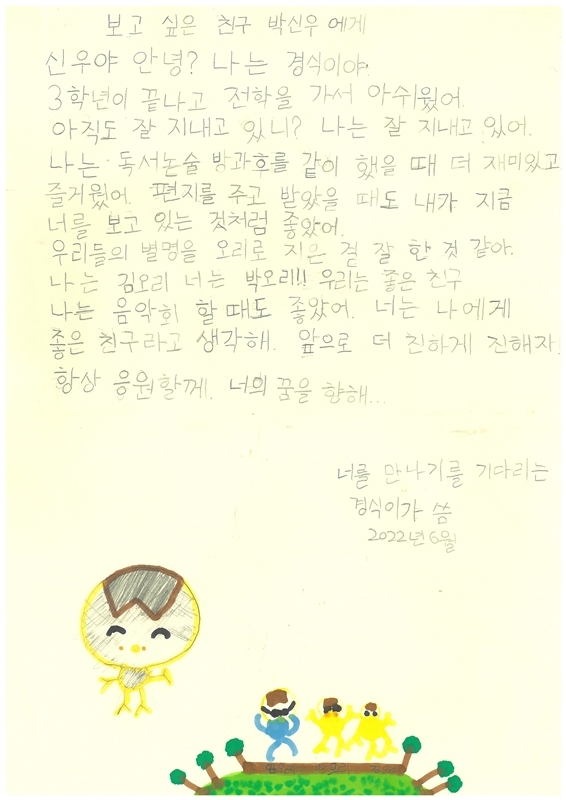 보고 싶은 친구 박신우에게
신우야 안녕? 나는 경식이야.
3학년이 끝나고 전학을 가서 아쉬웠어.
아직도 잘 지내고 있니? 나는 잘 지내고 있어.
나는 독서논술 방과후를 같이 했을 때 더 재미있고
즐거웠어. 편지를 주고 받았을 때도 내가 지금
너를 보고 있는 것처럼 좋았어.
우리들의 별명을 오리로 지은 겉 잘 한 것 같아.
나는 김오리 너는 박오리!! 우리는 좋은 친구
나는 음악회 할 때도 좋았어. 너는 나에게
좋은 친구라고 생각해. 앞으로 더 친하게 진해자.
항상 응원할께. 너의 꿈을 향해...
너를 만나기를 기다리는
경식이가 씀
2022년 6월